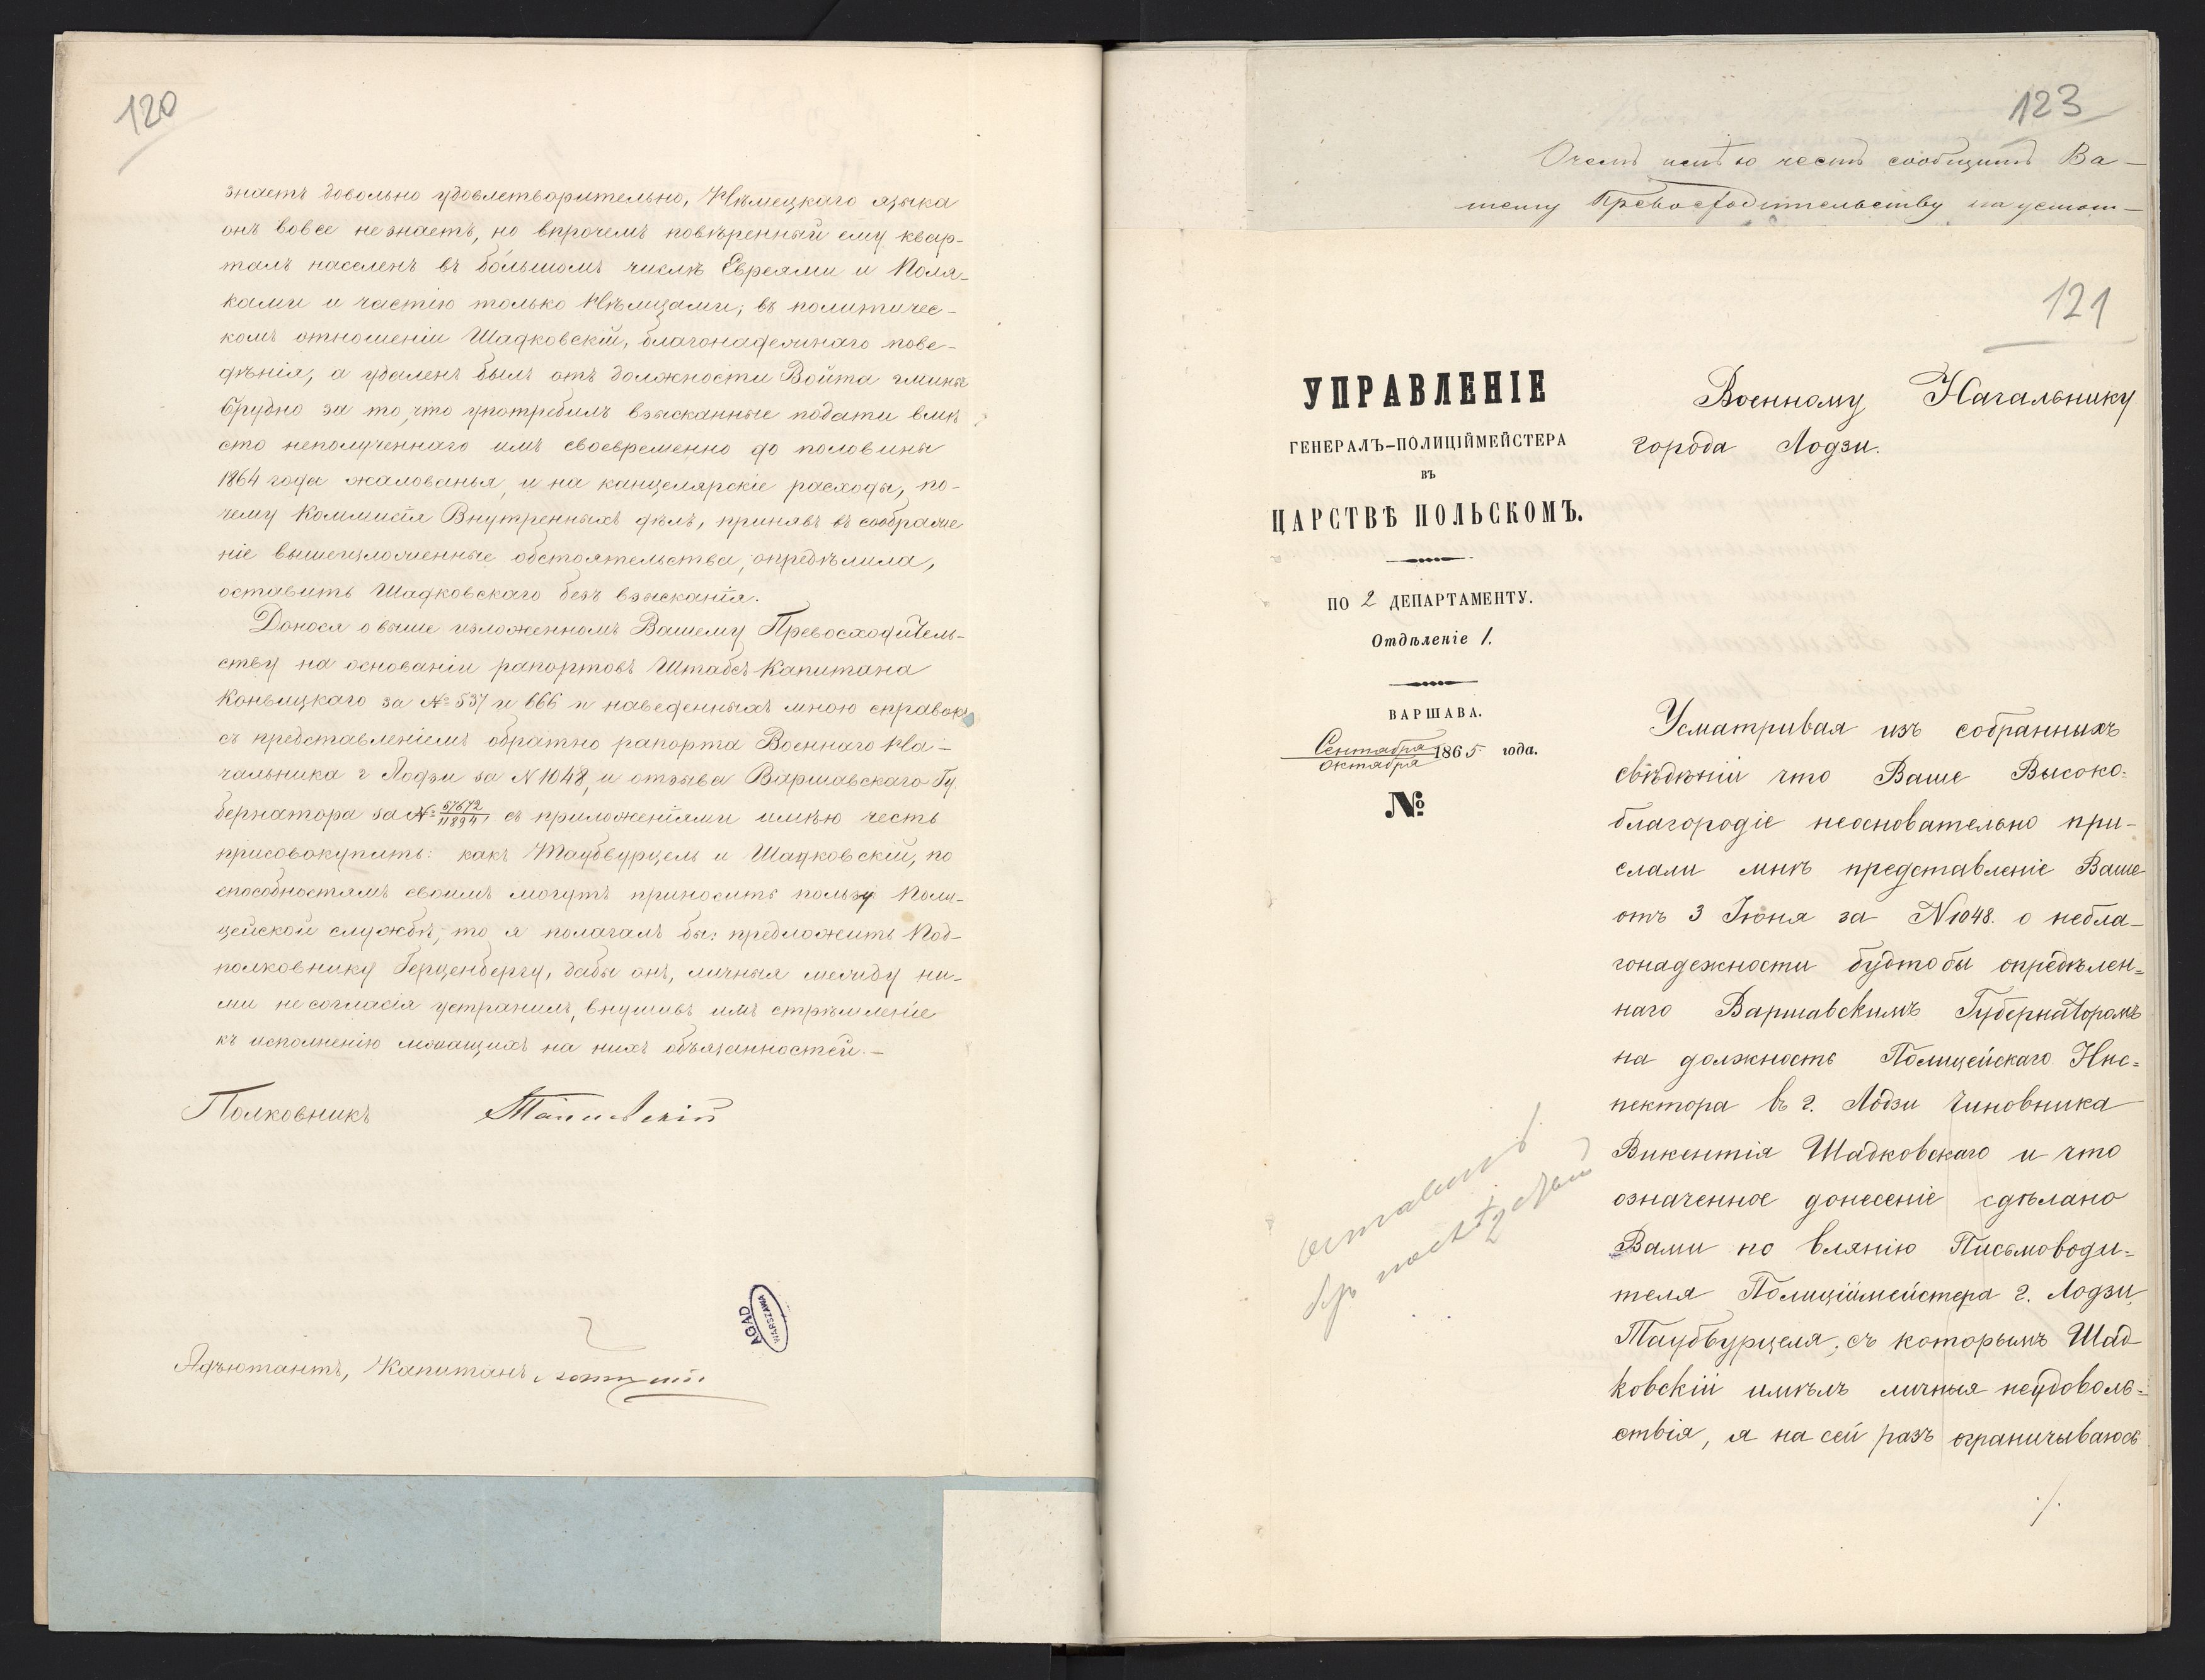 120
знаетъ довольно удовлетворительно, Нѣмецкаго языка
онъ вовсе не знаетъ, но впрочемъ повѣренный ему квар-
талъ населенъ въ большомъ числѣ Евреями и Поля-
ками и частію только Нѣмцами; въ политичес-
комъ отношеніи Шадковскій, благонадежнаго пове-
денія, а удаленъ былъ отъ должности Войта гмины
Брудно за то, что употребилъ взысканные подати вмѣ
сто неполученнаго имъ своевременно до половины
1864 года жалованья, и на канцелярскіе расходы, по-
чему Коммисія Внутреннихъ дѣлъ, принявъ въ соображе
ніе вышеизложенные обстоятельства, опредѣлила,
оставить Шадковскаго безъ взысканія.
Донося о выше изложенномъ Вашему Превосходитель-
ству на основаніи рапортовъ Штабсъ Капитана
за № 537 и 666 и наведенныхъ мною справокъ
съ представленіемъ обратно рапорта Военнаго На-
чальника г Лодзи за N 1048, и отзыва Варшавскаго Гу
бернатора за № 57672/11894, съ приложеніями имѣю честь
присовокупить: какъ Таубвурцель и Шадковскій, по
способностямъ своимъ могутъ приносить пользу Поли-
цейской службѣ, то я полагалъ бы: предложить Под-
полковнику Герценбергу, дабы онъ, личныя между ни-
ми не согласія устранилъ, внушивъ имъ стрѣмленіе
къ исполненію лежащихъ на нихъ обязанностей.—
Полковникъ
Адъютантъ, Капитанъ
AGAD
WARSZAWA
123
О чемъ имѣю честь сообщить Ва-
шему Превосходительству на
121
УПРАВЛЕНІЕ
ГЕНЕРАЛЪ-ПОЛИЦІЙМЕЙСТЕРА
ВЪ
ЦАРСТВѢ ПОЛЬСКОМЪ.
ПО 2 ДЕПАРТАМЕНТУ.
Отдѣленіе 1.
ВАРШАВА.
Сентября/Октября 1865 года.
№
Военному Начальнику
города Лодзи.
Усматривая изъ собранныхъ
свѣдѣній что Ваше Высоко=
благородіе неосновательно при-
слали мнѣ представленіе Ваше
отъ 3 Іюня за N 1048. о небла-
гонадежности будто бы опредѣлен=
наго Варшавскимъ Губернаторомъ
на должность Полицейскаго Инс=
пектора въ г. Лодзи чиновника
Викентія Шадковскаго и что
означенное донесеніе сдѣлано
Вами по вліянію Письмоводи=
теля Полиціймейстера г. Лодзи,
Таубвурцеля, съ которымъ Шад
ковскій имѣлъ личныя неудоволь=
ствія, я на сей разъ ограничываюсь
./.
оставить